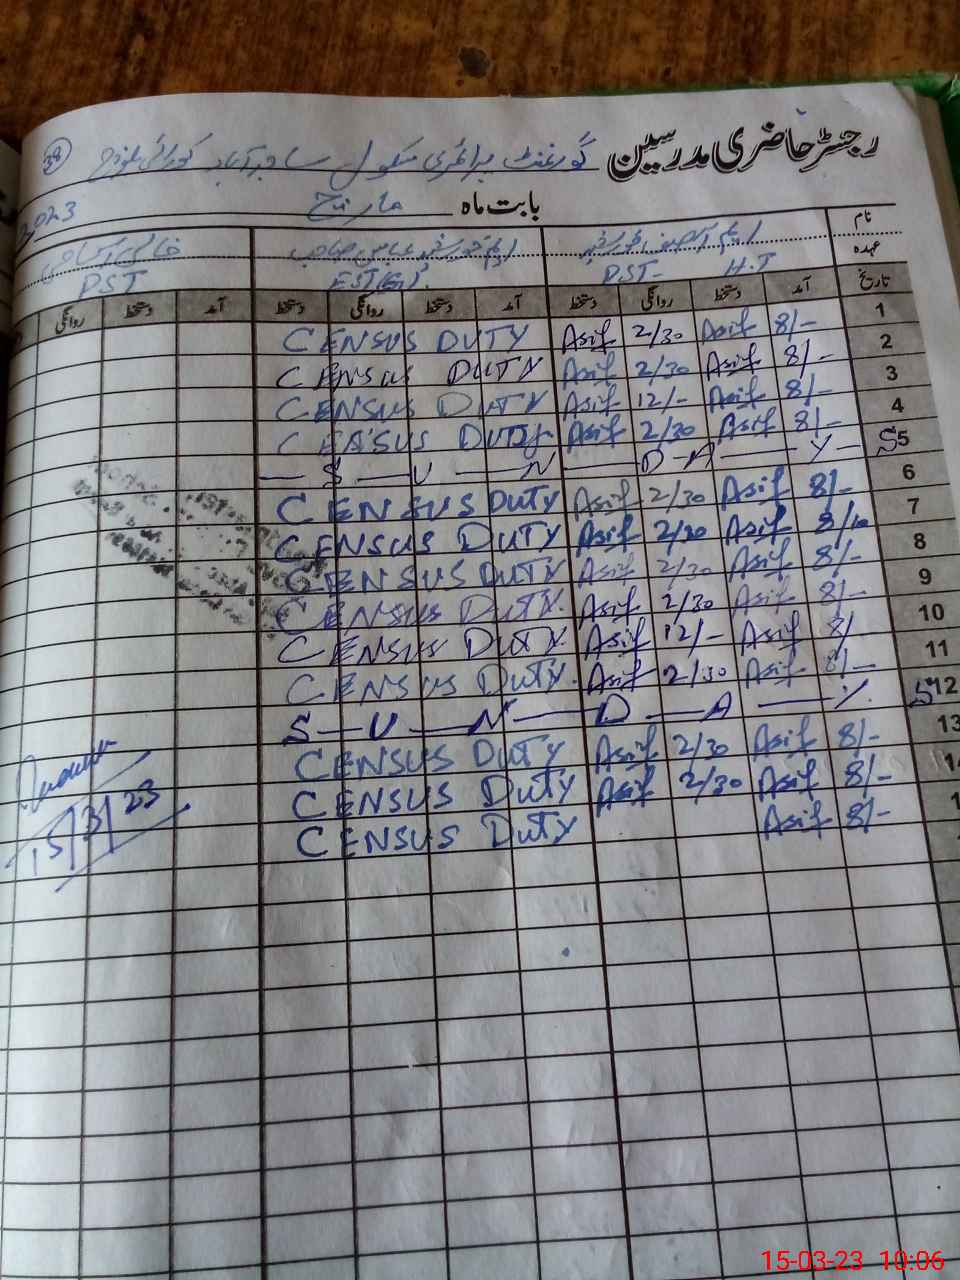 رجسٹر حاضری مدرسین گورنمنٹ پرائمری سکول
38
بابت ماہ مارچ 2023
نام
عہدہ PST- H.T EST(G) PST
تاریخ آمد دستخط روانگی دستخط آمد دستخط روانگی دستخط آمد دستخط روانگی
1 8/- Asif 2/30 Asif CENSUS DUTY
2 8/- Asif 2/30 Asif CENSUS DUTY
3 8/- Asif 12/- Asif CENSUS DUTY
4 8/- Asif 2/30 Asif CENSUS DUTY
S5 S U N D A Y
6 8/- Asif 2/30 Asif CENSUS DUTY
7 8/10 Asif 2/30 Asif CENSUS DUTY
8 8/- Asif 2/30 Asif CENSUS DUTY
9 8/- Asif 2/30 Asif CENSUS DUTY
10 8/ Asif 12/- Asif CENSUS DUTY
11 8/- Asif 2/30 Asif CENSUS DUTY
S12 S U N D A Y
13 8/- Asif 2/30 Asif CENSUS DUTY
14 8/- Asif 2/30 Asif CENSUS DUTY
8/- Asif CENSUS DUTY
15/3/23
15-03-23 10:06